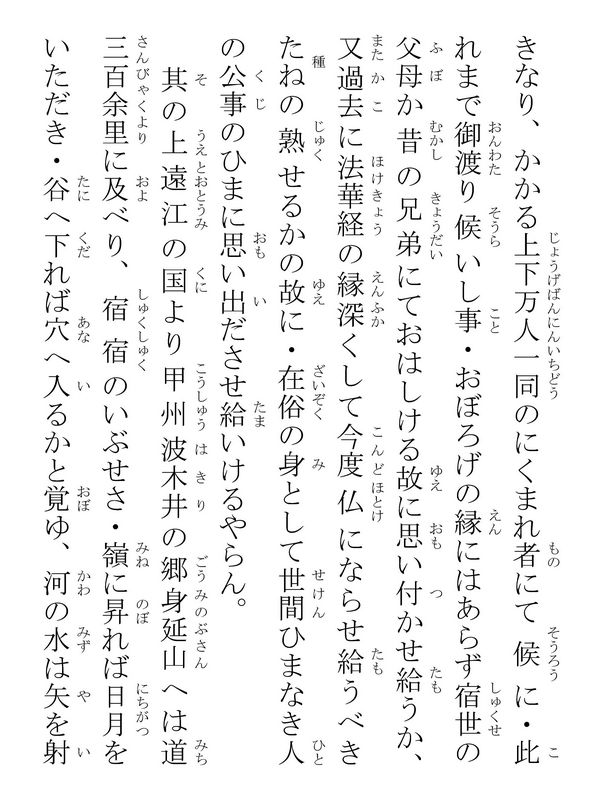 きなり、かかる上下万人一同のにくまれ者にて候に・此
れまで御渡り候いし事・おぼろげの縁にはあらず宿世の
父母か昔の兄弟にておはしける故に思い付かせ給うか、
又過去に法華経の縁深くして今度仏にならせ給うべき
たねの熟せるかの故に・在俗の身として世間ひまなき人
の公事のひまに思い出ださせ給いけるやらん。
其の上遠江の国より甲州波木井の郷身延山へは道
三百余里に及べり、宿宿のいぶせさ・嶺に昇れば日月を
いただき・谷へ下れば穴へ入るかと覚ゆ、河の水は矢を射